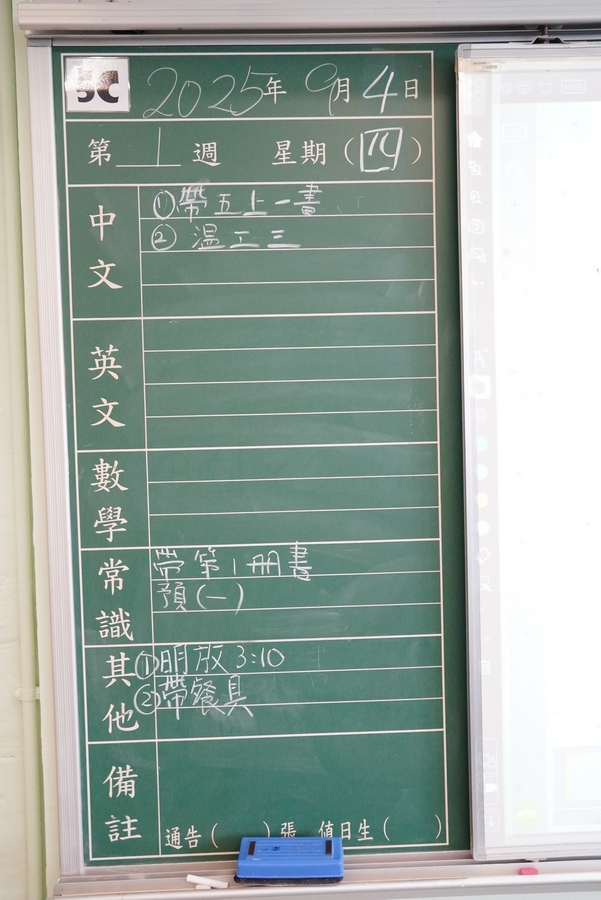 5C 2025年 9月 4日
第 1 週 星期(四)
中文
①帶五上一書
② 温工三
英文
數學
常識
帶第1冊書
預(一)
其他
①明放3:10
②帶餐具
備註
通告( )張 值日生( )